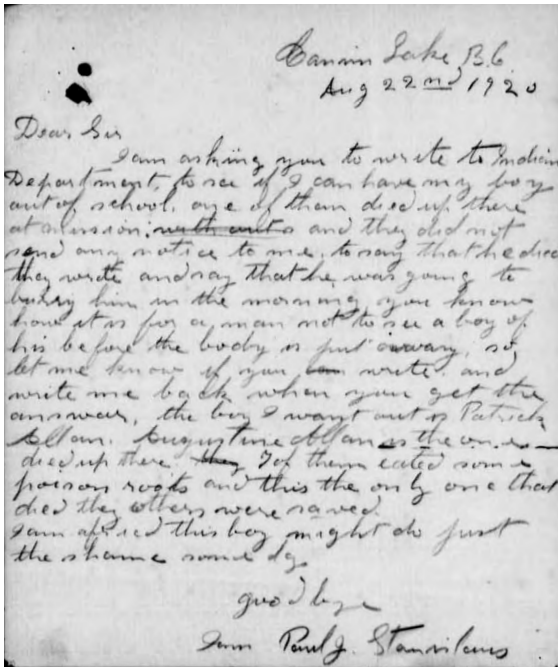 Canim Lake B.C.
Aug 22nd 1920
Dear Sir
I am asking you to write to Indian
Department, to see if I can have my boy
out of school. one of them died up there
at mission, and they did not
send any notice to me, to say that he died
they write and say that he was going to
burry him in the morning you know
how it is for a man not to see a boy of
his before the body is put away, so
let me know if you write, and
write me back when you get the
answear, the boy I want out is Patrick
Allan. Augustine Allan is the one is
died up there. they 7 of them eated some
poison roots and this the only one that
died they others were saved.
I am afried this boy might do just
the shame some dy.
good bye
I am Paul J. Stanislaus